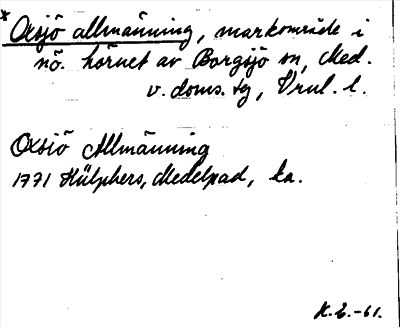 x Oxsjö allmänning, markområde i
nö. hörnet av Borgsjö sn, Med.
v. doms. tg,
Oxsiö Allmänning
1771 Hülphers, Medelpad, ka.
K.E.-61.